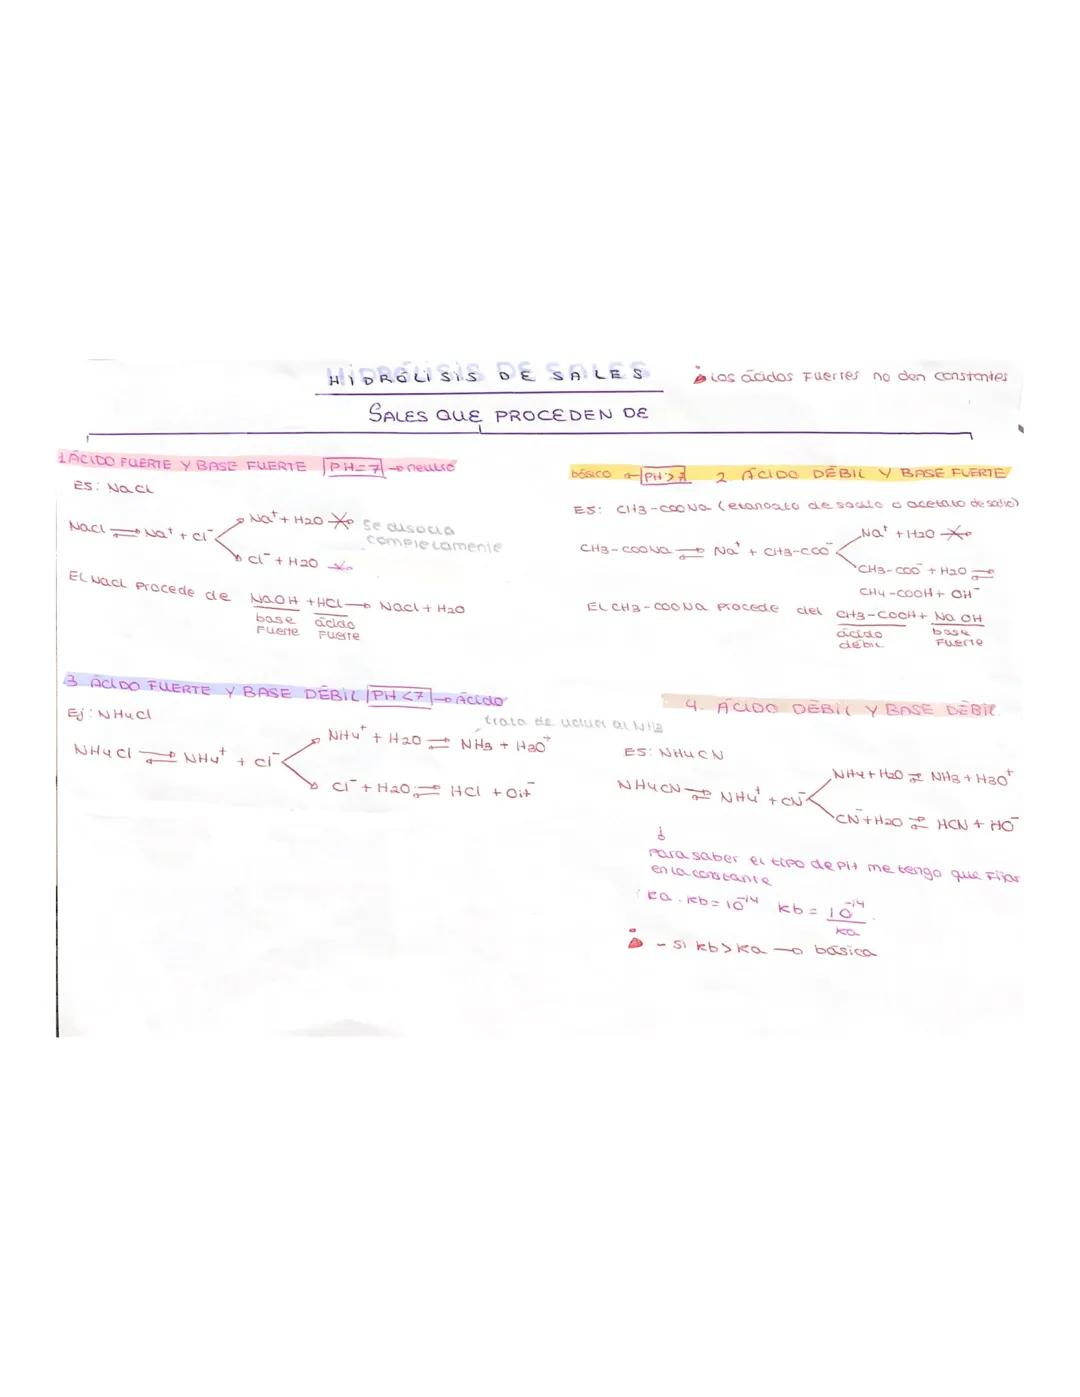 HIDRÓLISIS DE SALES
Los ácidos Fuertes no dan constantes
SALES QUE PROCEDEN DE
1 ÁCIDO FUERTE Y BASE FUERTE PH=7 → neutro
ES: NaCl
NaCl ⇌ Na⁺ + Cl⁻
Na⁺ + H2O
Se disocia
completamente
Cl⁻ + H2O
EL NaCl procede de NaOH + HCl → NaCl + H2O
base ácido
Fuerte Fuerte
básico ← PH>7 2. ÁCIDO DÉBIL Y BASE FUERTE
ES: CH3-COONa (etanoato de sodio o acetato de sodio)
CH3-COONa ⇌ Na⁺ + CH3-COO⁻
Na⁺ + H2O
CH3-COO⁻ + H2O ⇌
CH4-COOH + OH⁻
EL CH3-COONa procede del CH3-COOH + NaOH
ácido base
débil Fuerte
3 ÁCIDO FUERTE Y BASE DÉBIL PH<7 → Ácido
Ej: NH4Cl
NH4Cl ⇌ NH4⁺ + Cl⁻
trata de volver al NH3
NH4⁺ + H2O ⇌ NH3 + H3O⁺
Cl⁻ + H2O ⇌ HCl + OH⁻
4. ÁCIDO DÉBIL Y BASE DÉBIL
ES: NH4CN
NH4CN ⇌ NH4⁺ + CN⁻
NH4 + H2O ⇌ NH3 + H3O⁺
CN⁻ + H2O ⇌ HCN + HO⁻
Para saber el tipo de PH me tengo que Fijar
en la constante
ka · kb = 10⁻¹⁴ kb = 10⁻¹⁴
ka
- Si kb > ka → básica